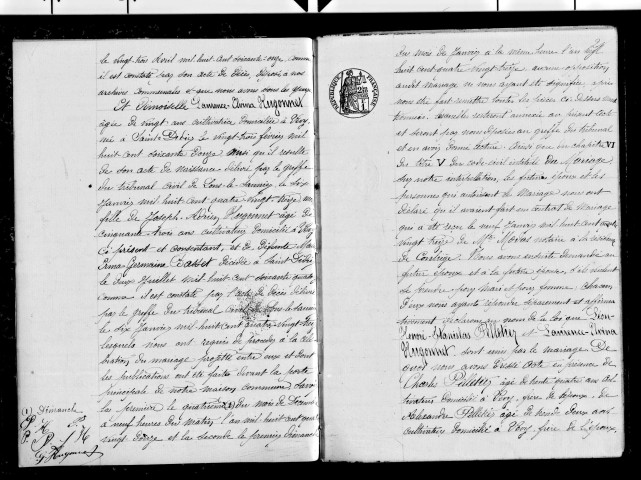 le vingt trois Avril mil huit cent soixante onze, comme
il est constaté par son acte de décès, déposé à nos
archives communales et que nous avons sous les yeux
Et Demoiselle Laurence Irma Hugonnet
âgée de vingt ans cultivatrice domiciliée à Véry,
née à Saint- le vingt trois février mil
huit cent soixante douze ainsi qu'il résulte
de son acte de naissance délivré par le greffe
du tribunal civil de Lons-le-Saunier, le dix
Janvier mil huit cent quatre vingt treize,
fille de Joseph Hugonnet âgé de
cinquante trois ans cultivateur domicilié à
ci présent et consentant, et de défunte
Germaine décédée à Saint-
le deux Juillet mil huit cent soixante quatorze
comme il est constaté par l'acte de décès délivré
par le greffe du tribunal civil de Lons-le-Saunier
le dix Janvier mil huit cent quatre-vingt treize
lesquels nous ont requis de procéder à la célé-
bration du mariage projeté entre eux et dont
les publications ont été faites devant la porte
principale de notre maison commune, savoir
la première le quatrième (1) du mois de
à neuf heures du matin, l'an mil huit cent quatre
vingt douze et la seconde le premier Dimanche
(1) Dimanche
P. H.
P. P.
J. Hugonnet
REPUBLIQUE FRANÇAISE
du mois de Janvier à la même heure l'an mil
huit cent quatre vingt treize, aucune opposition
audit mariage ne nous ayant été signifiée, après
nous être fait remettre toutes les pièces ci-dessus
lesquelles resteront annexées au présent acte
et seront par nous déposées au greffe du tribunal
et en avoir donné lecture ainsi que du chapitre VI
du titre V du code civil intitulé du Mariage
sur notre interpellation, les futurs époux et les
personnes qui autorisent le mariage nous ont
déclaré qu'il avaient fait un contrat de mariage
qui a été reçu le neuf Janvier mil huit cent quatre
vingt treize de Me Moras notaire à la résidence
de Conliège. Nous avons ensuite demandé au
futur époux et à la future épouse s'ils veulent
se prendre pour mari et pour femme. Chacun
d'eux nous ayant répondu séparément et affirma-
tivement déclarons au nom de la loi que Léon
Henri Stanislas Pelletier et Laurence Irma
Hugonnet sont unis par le mariage. De
quoi nous avons dressé acte en présence de
Charles Pelletier âgé de trente quatre ans cul-
tivateur domicilié à Véry, frère de l'époux, de
Alexandre Pelletier âgé de trente deux ans
cultivateur domicilié à Véry, frère de l'époux,